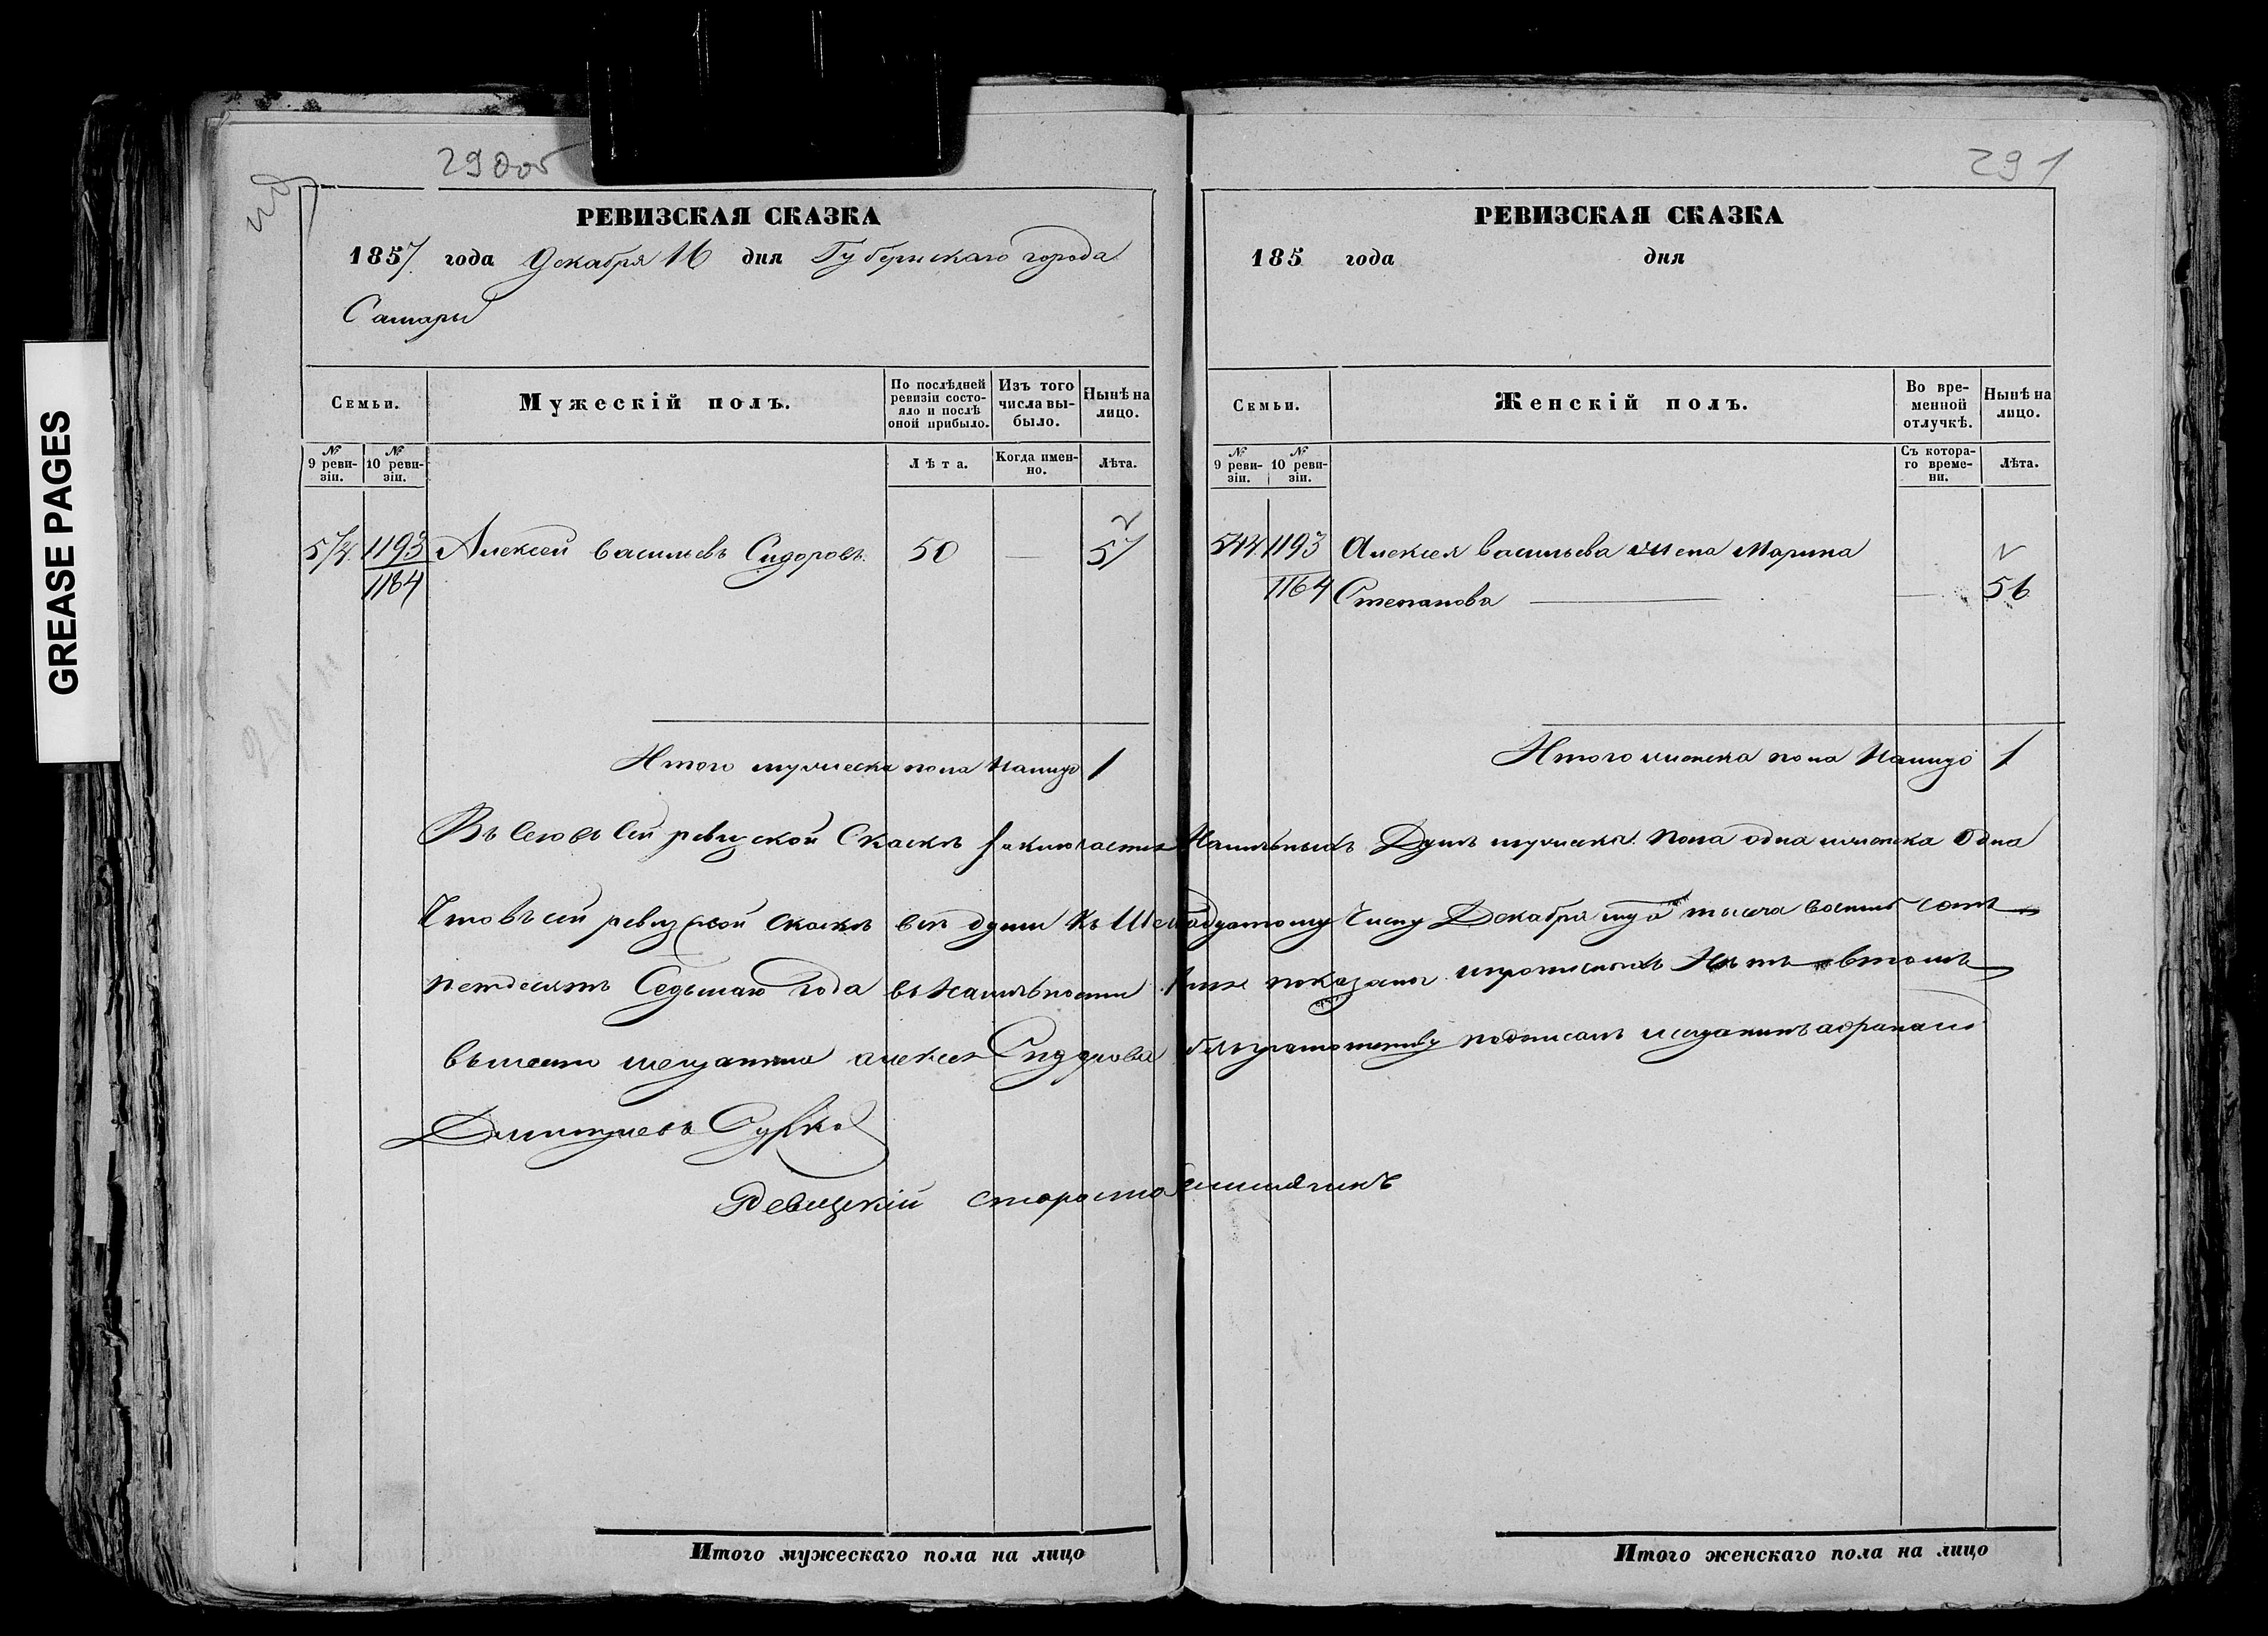 GREASE PAGES
290об
РЕВИЗСКАЯ СКАЗКА
1857 года Декабря 16 дня Губернскаго города
Самары
Семьи.
Мужескій полъ.
По послѣдней ревизіи состояло и послѣ оной прибыло.
Изъ того числа выбыло.
Нынѣ на лицо.
№ 9 ревизіи.
№ 10 ревизіи.
Лѣта.
Когда именно.
Лѣта.
1193 Алексей Васильевъ Сидоровъ 50 — 57
1184
Итого мужеска пола налицо 1
291
РЕВИЗСКАЯ СКАЗКА
185 года дня
Семьи.
Женскій полъ.
Во временной отлучкѣ.
Нынѣ на лицо.
№ 9 ревизіи.
№ 10 ревизіи.
Съ котораго времени.
Лѣта.
544 1193 Алексея Васильева жена Марина
1164 Степанова — 56
Итого женска пола налицо 1
Всего въ сей ревизской сказкѣ заключается наличныхъ душъ мужеска пола одна женска одна
Что въ сей ревизской сказкѣ все души къ Шеснадцатому числу Декабря тысяча восемь сотъ
петдесятъ седьмаго года въ наличности показаны и прописныхъ нѣтъ въ томъ
вместо мещанина алексея Сидорова подписалъ мещанинъ
Дмитриевъ
Ревизкій староста
Итого мужескаго пола на лицо
Итого женскаго пола на лицо